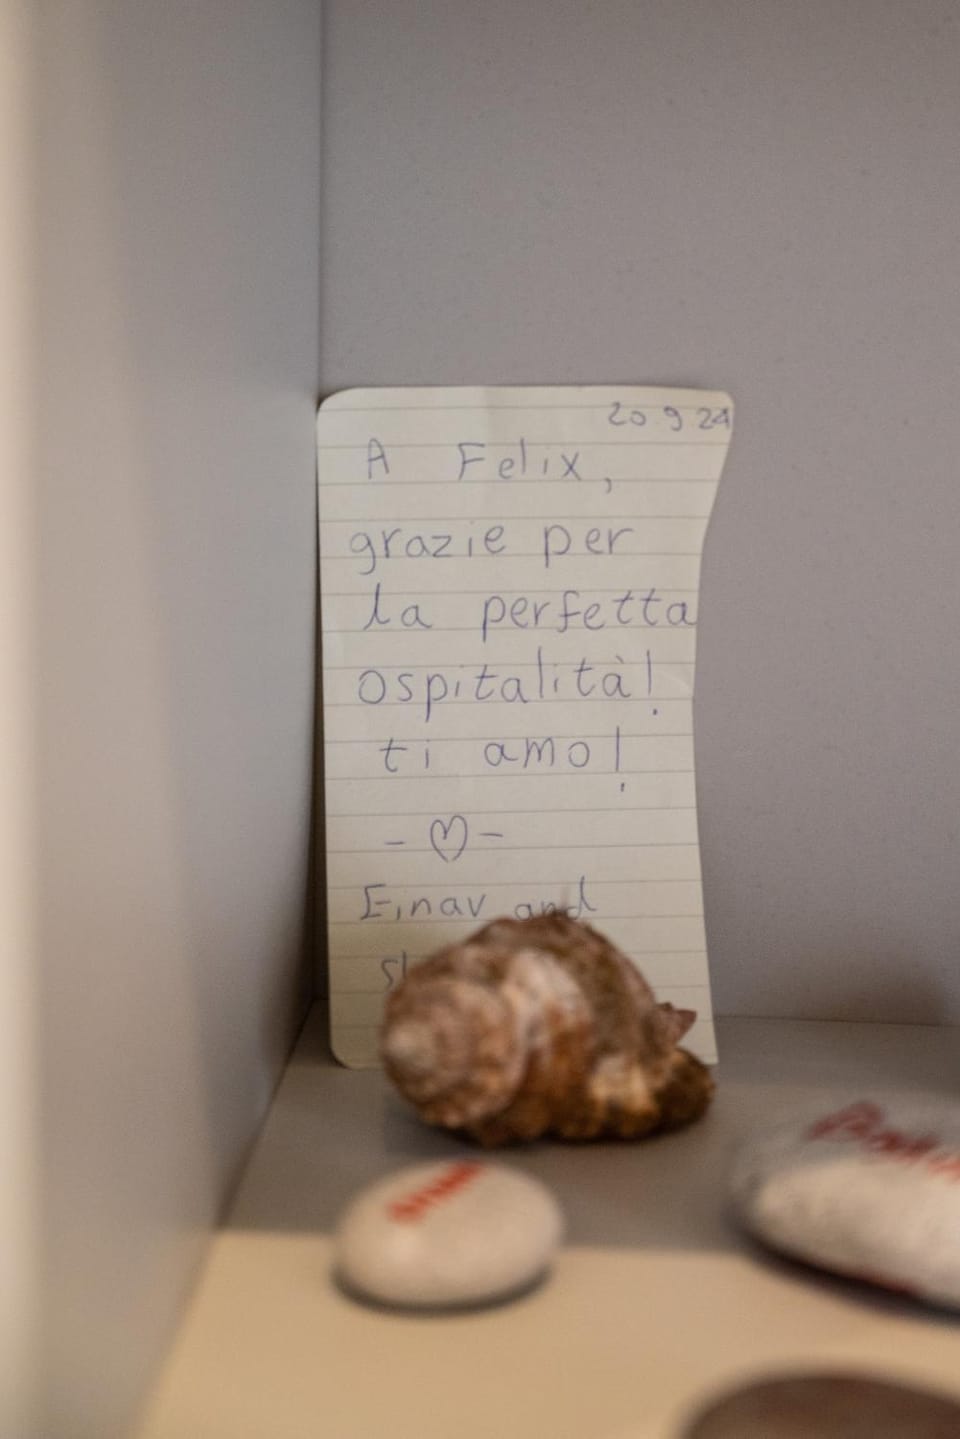 20.9.24
A Felix,
grazie per
la perfetta
ospitalità!
ti amo!
Einav and